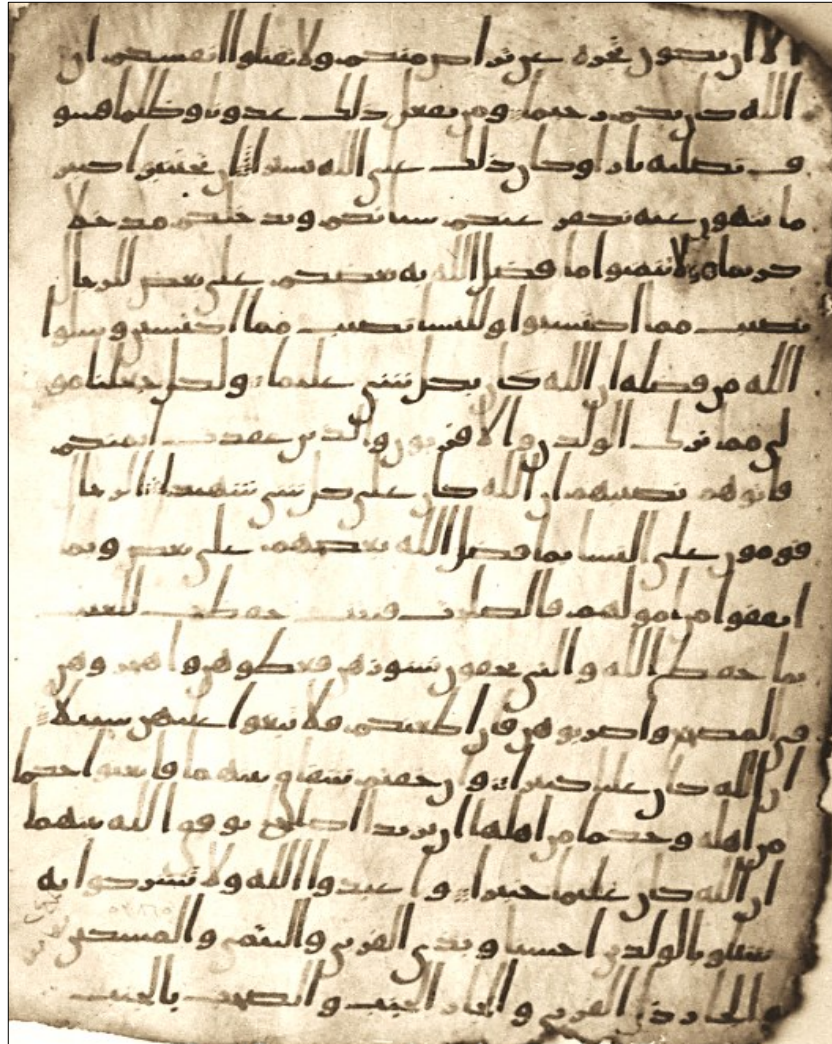 الا ان تكون تجره عن تراض منكم ولا تقتلوا انفسكم ان
الله كان بكم رحيما ومن يفعل ذلك عدونا وظلما فسو
ف نصليه نارا وكان ذلك على الله يسيرا ان تجتنبوا كبير
ما تنهون عنه نكفر عنكم سياتكم وندخلكم مدخلا
كريما ولا تتمنوا ما فضل الله به بعضكم على بعض للرجال
نصيب مما اكتسبوا وللنسا نصيب مما اكتسبن وسلوا
الله من فضله ان الله كان بكل شي عليما ولكل جعلنا مو
لي مما ترك الولدن والاقربون والذين عقدت ايمنكم
فاتوهم نصيبهم ان الله كان على كل شي شهيدا الرجال
قومون على النسا بما فضل الله بعضهم على بعض وبما
انفقوا من امولهم فالصلحت قنتت حفظت للغيب
بما حفظ الله والتي تخفون نشوزهن فعظوهن واهجروهن
في المضجع واضربوهن فان اطعنكم فلا تبغوا عليهن سبيلا
ان الله كان عليا كبيرا وان خفتم شقاق بينهما فابعثوا حكما
من اهله وحكما من اهلها ان يريدا اصلحا يوفق الله بينهما
ان الله كان عليما خبيرا واعبدوا الله ولا تشركوا به
شيا وبالولدين احسنا وبذي القربى واليتمى والمسكين
والجار ذي القربى والجار الجنب والصحب بالجنب